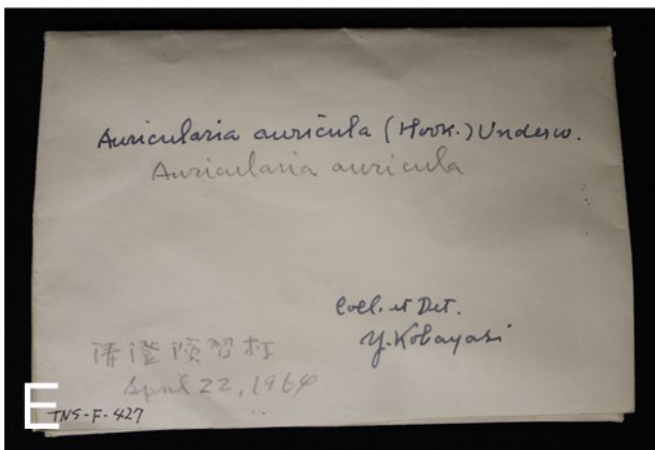 Auricularia auricula (Hook.) Underw.
Auricularia auricula
Coll. et Det.
Y. Kobayasi
清澄
April 22, 1964
E
TNS-F-427